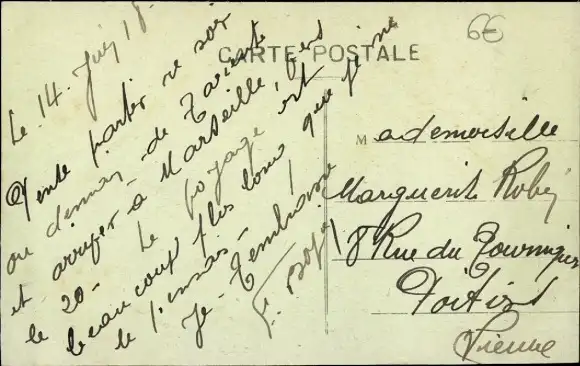 CARTE POSTALE
6€
Le 14. Juin 18.
Pense partir ce soir
ou demain de Tarente
et arriver à Marseille, vers
le 20 - Le voyage est
beaucoup plus long que je ne
le pensais -
Je t'embrasse
Mademoiselle
Marguerite
18 Rue du
Poitiers
Vienne